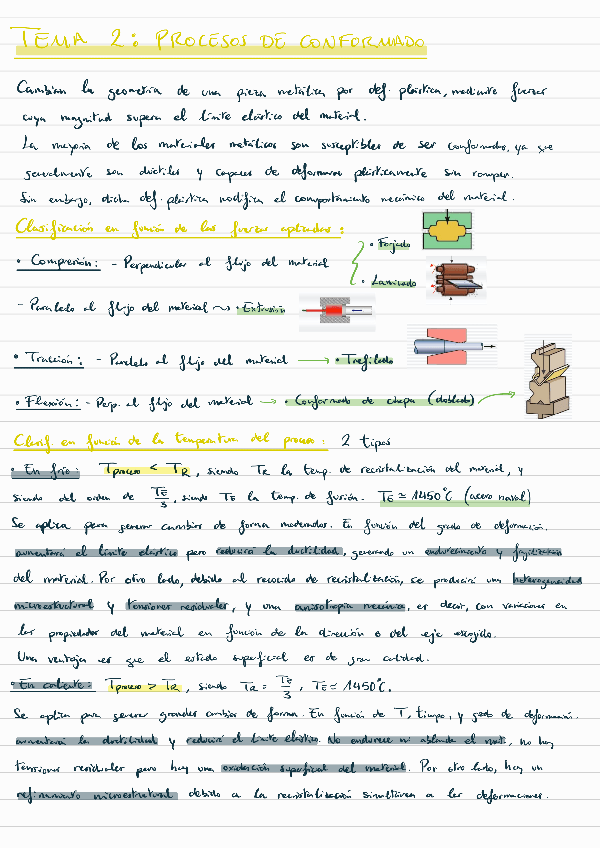 TEMA 2: PROCESOS DE CONFORMADO
Cambian la geometría de una pieza metálica por def. plástica, mediante fuerzas
cuya magnitud supera el límite elástico del material.
La mayoría de los materiales metálicos son susceptibles de ser conformados, ya que
generalmente son dúctiles y capaces de deformarse plásticamente sin romper.
Sin embargo, dicha def. plástica modifica el comportamiento mecánico del material.
Clasificación en función de las fuerzas aplicadas:
• Compresión: - Perpendicular al flujo del material
• Forjado
• Laminado
- Paralela al flujo del material • Extrusión
• Tracción: - Paralela al flujo del material → • Trefilado
• Flexión: - Perp. al flujo del material → • Conformado de chapa (doblado)
Clasif. en función de la temperatura del proceso: 2 tipos
• En frío: Tproceso < TR, siendo TR la temp. de recristalización del material, y
siendo del orden de TF/3, siendo TF la temp. de fusión. TF ≃ 1450°C (acero naval)
Se aplica para generar cambios de forma moderados. En función del grado de deformación.
aumentará el límite elástico pero reducirá la ductilidad, generando un endurecimiento y fragilización
del material. Por otro lado, debido al recocido de recristalización, se producirá una heterogeneidad
microestructural y tensiones residuales, y una anisotropía mecánica, es decir, con variaciones en
las propiedades del material en función de la dirección o del eje escogido.
Una ventaja es que el estado superficial es de gran calidad.
• En caliente: Tproceso > TR, siendo TR = TF/3, TF ≃ 1450°C.
Se aplica para generar grandes cambios de forma. En función de T, tiempo, y grado de deformación.
aumentará la ductilidad y reducirá el límite elástico. No endurece ni ablanda el mat., no hay
tensiones residuales pero hay una oxidación superficial del material. Por otro lado, hay un
refinamiento microestructural debido a la recristalización simultánea a las deformaciones.